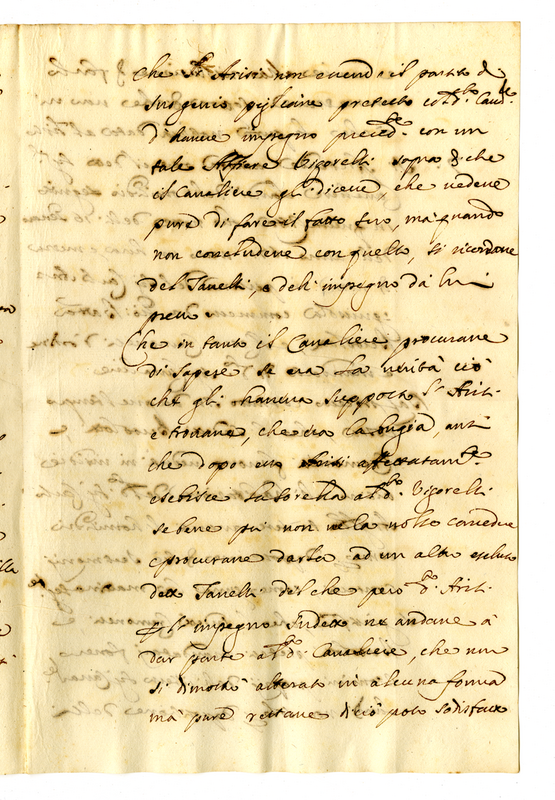 Che d.º Arisi non avendo il partito di
suo genio pigliasse pretesto co'd.º Caud.re
d'havere impegno preced.te con un
tale Alfiere Vigorelli sopra di che
il Cavaliere gli diceve, che vedeve
pure di fare il fatto suo, ma quando
non concludeve con quello, si ricordave
del Tanelli, e del impegno dà lui
preso
Che in tanto il Cavaliere procurave
di sapere se era la verità ciò
che gli haveva supposto d.º Arisi
e trovave, che era la bugia, anzi
che dopo esso Arisi affettatam.te
esebisce la sorella a d.º Vigorelli
se bene poi non ne la volle concedere
e procurave darla ad un altro escluso
detto Tanelli del che però d.º Arisi
per l'impegno sudetto ne andave à
dar parte a d.º Cavaliere, che non
si dimostrò alterato in alcuna forma
mà pure restave di ciò poco sodisfatto